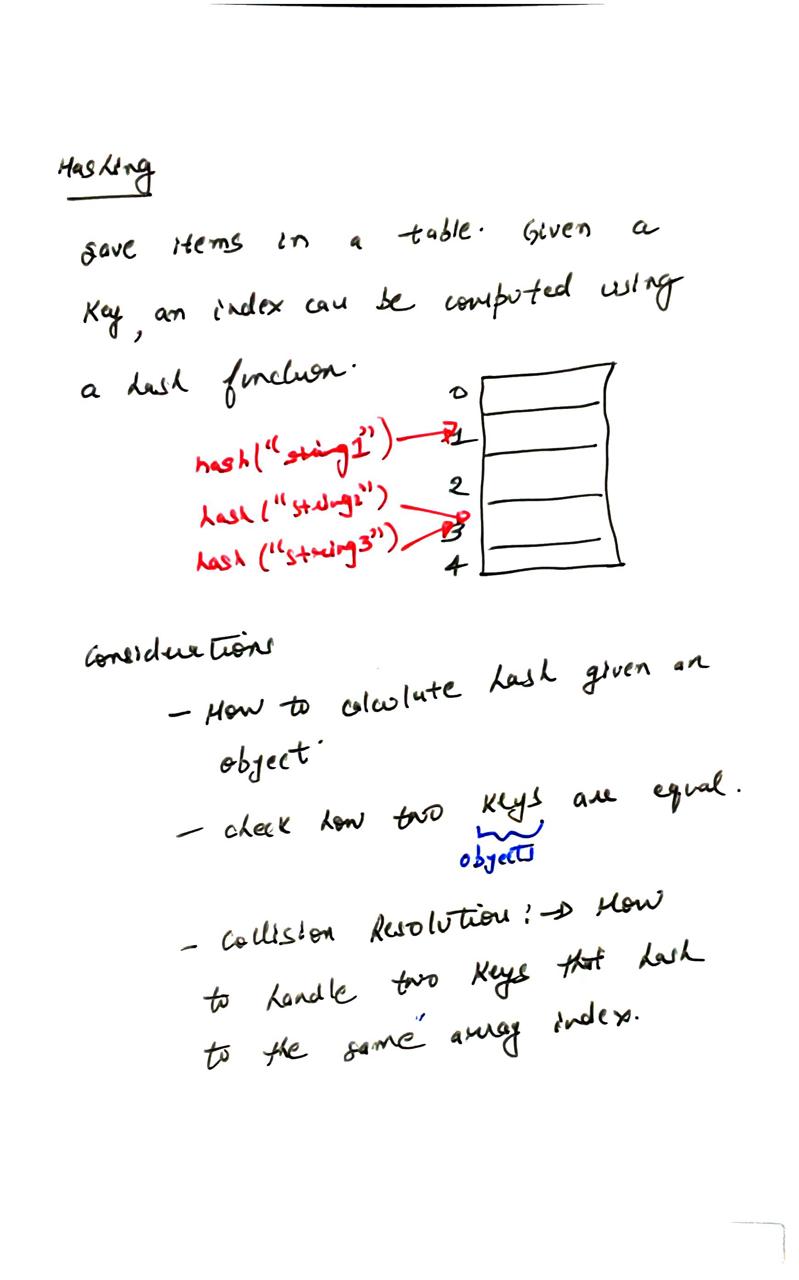 Hashing
Save items in a table. Given a
Key, an index can be computed using
a hash function.
0
hash("string1") 1
2
hash("string2")
3
hash("string3")
4
Considerations
- How to calculate hash given an
object
- check how two keys are equal.
objects
- Collision Resolution: → How
to handle two keys that hash
to the same array index.